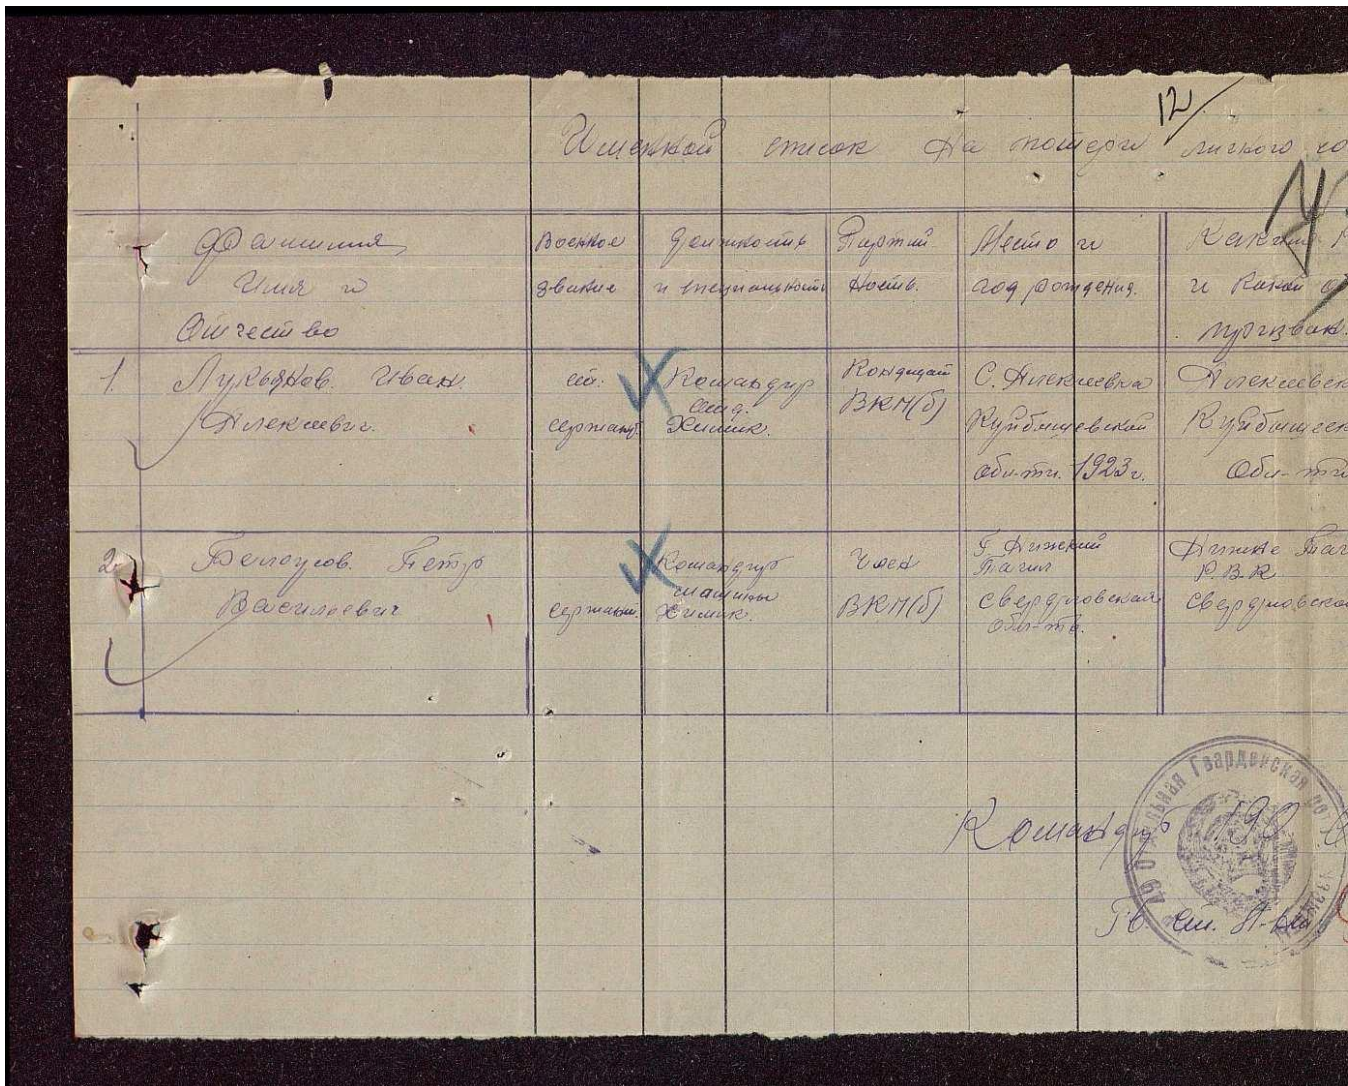 12
Именной список на потери личного со
Фамилия Имя и Отчество
Военное звание
Должность и специальность
Партий ность.
Место и год рождения.
Каким Р и какой о призван.
1. Лукьянов. Иван. Алексеевич.
ст. сержант.
Командир отд. Химик.
Кондидат ВКП(б)
С. Алексеевка Куйбышевской обл-ти. 1923г.
Алексеевск Куйбышевск Обл-ти
2. Белоусов. Петр Васильевич
сержант.
Командир машины Химик.
Член ВКП(б)
Г Нижний Тагил Свердловская Обл-ть.
Нижне Таг Р.В.К Свердловской
Командир
Отдельная Гвардейская ро
Гв. Ст. Л-нт